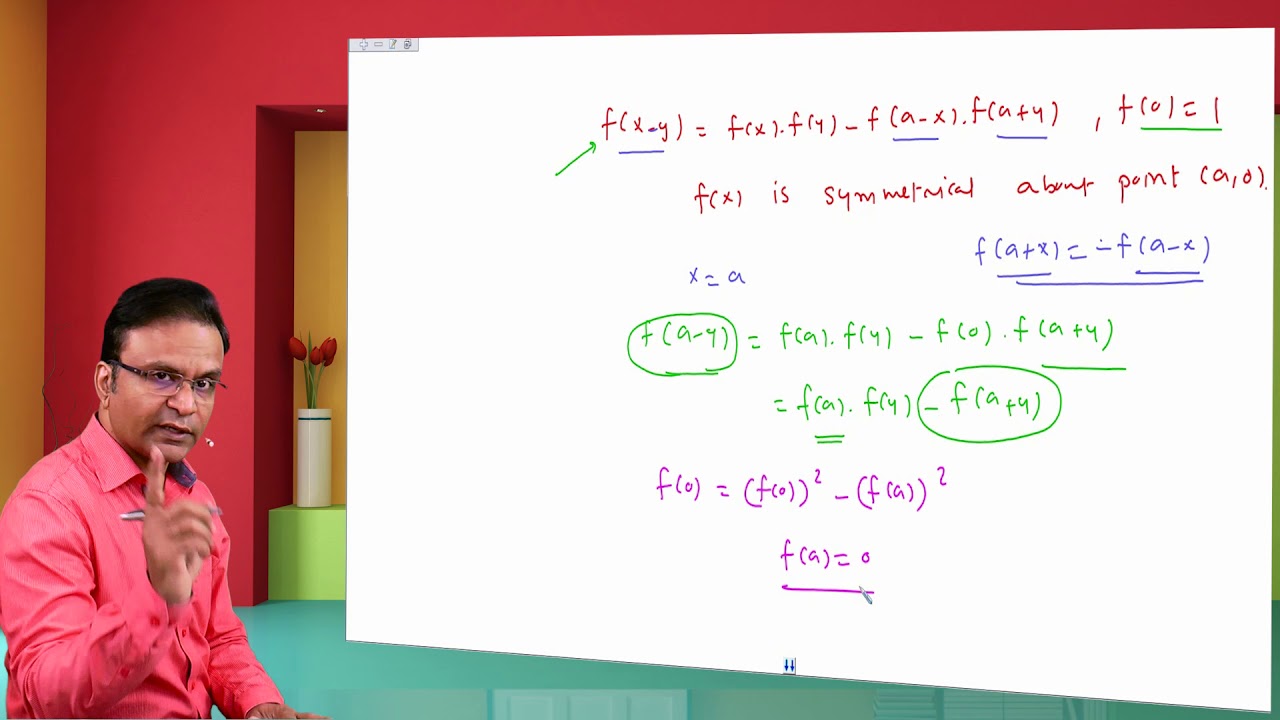 f(x-y) = f(x).f(y) - f(a-x).f(a+y) , f(0) = 1
f(x) is symmetrical about point (a,0).
f(a+x) = -f(a-x)
x = a
f(a-y) = f(a).f(y) - f(0).f(a+y)
= f(a).f(y) - f(a+y)
f(0) = (f(0))² - (f(a))²
f(a) = 0